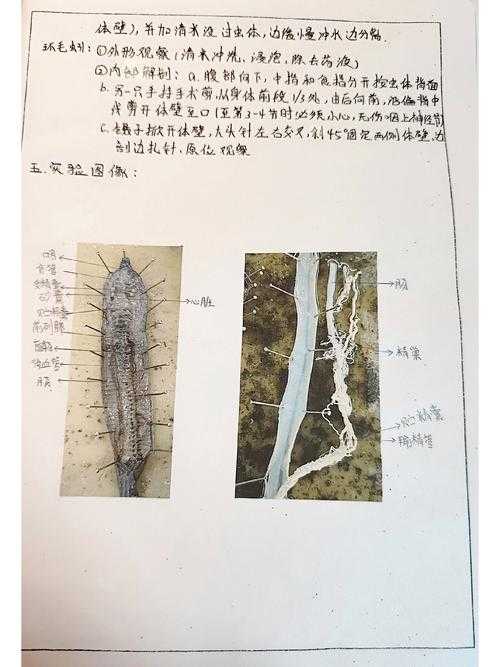 体壁），并加清水没过虫体，边缓慢冲水边分离
环毛蚓：①外形观察（清水冲洗、浸泡，除去药液）
②内部解剖：a. 腹部向下，中指和食指分开拉虫体背面
b. 另一只手持手术剪，从身体前段1/3处，由后向前，沿偏背中
线剪开体壁至口（至第3-4节时必须小心，无伤咽上神经节）
c. 镊子掀开体壁，大头针左右交叉，斜45°固定两侧体壁，边
剖边扎针，原位观察
五、实验图像：
咽
食管
贮精囊
前列腺
盲肠
肠
心脏
肠
精巢
贮精囊
输精管